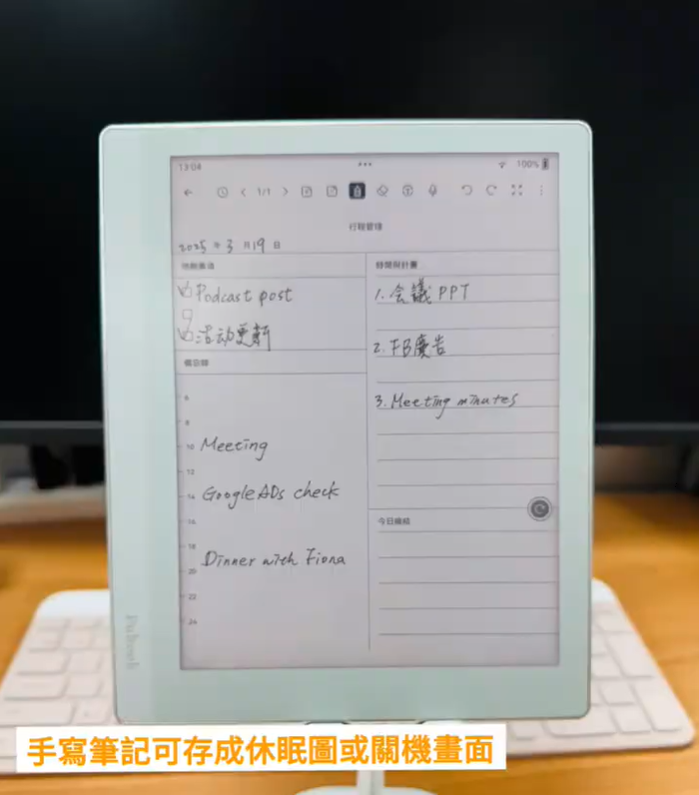 13:04
100%
1/1
行程管理
2025 年 3 月 19 日
時間與計畫
Podcast post
活动更新
1. 会議 PPT
2. FB廣告
3. Meeting minutes
備忘錄
6
8
10 Meeting
12
14 GoogleADs check
16
18
Dinner with Fiona
20
22
24
今日總結
手寫筆記可存成休眠圖或關機畫面